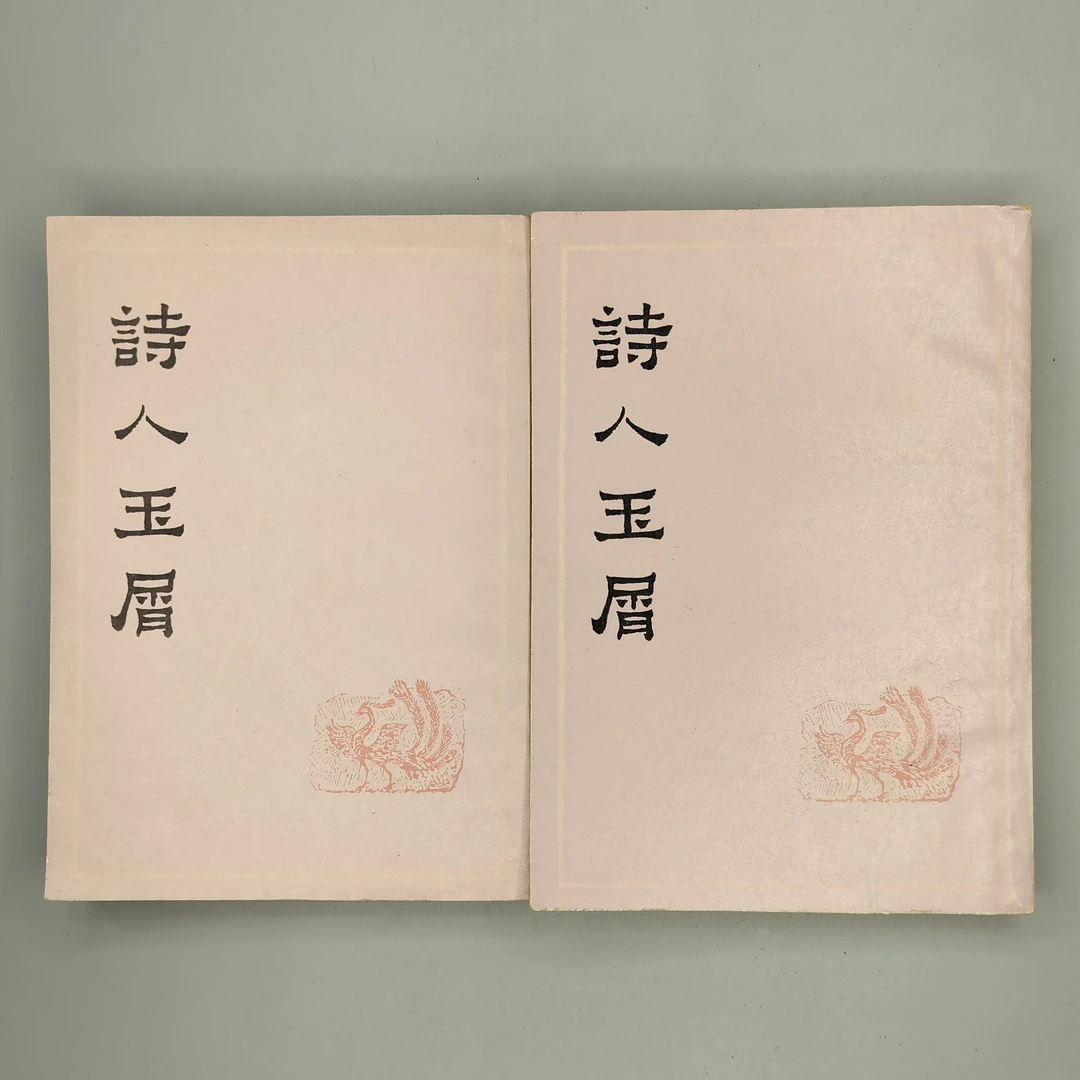 詩人玉屑
詩人玉屑